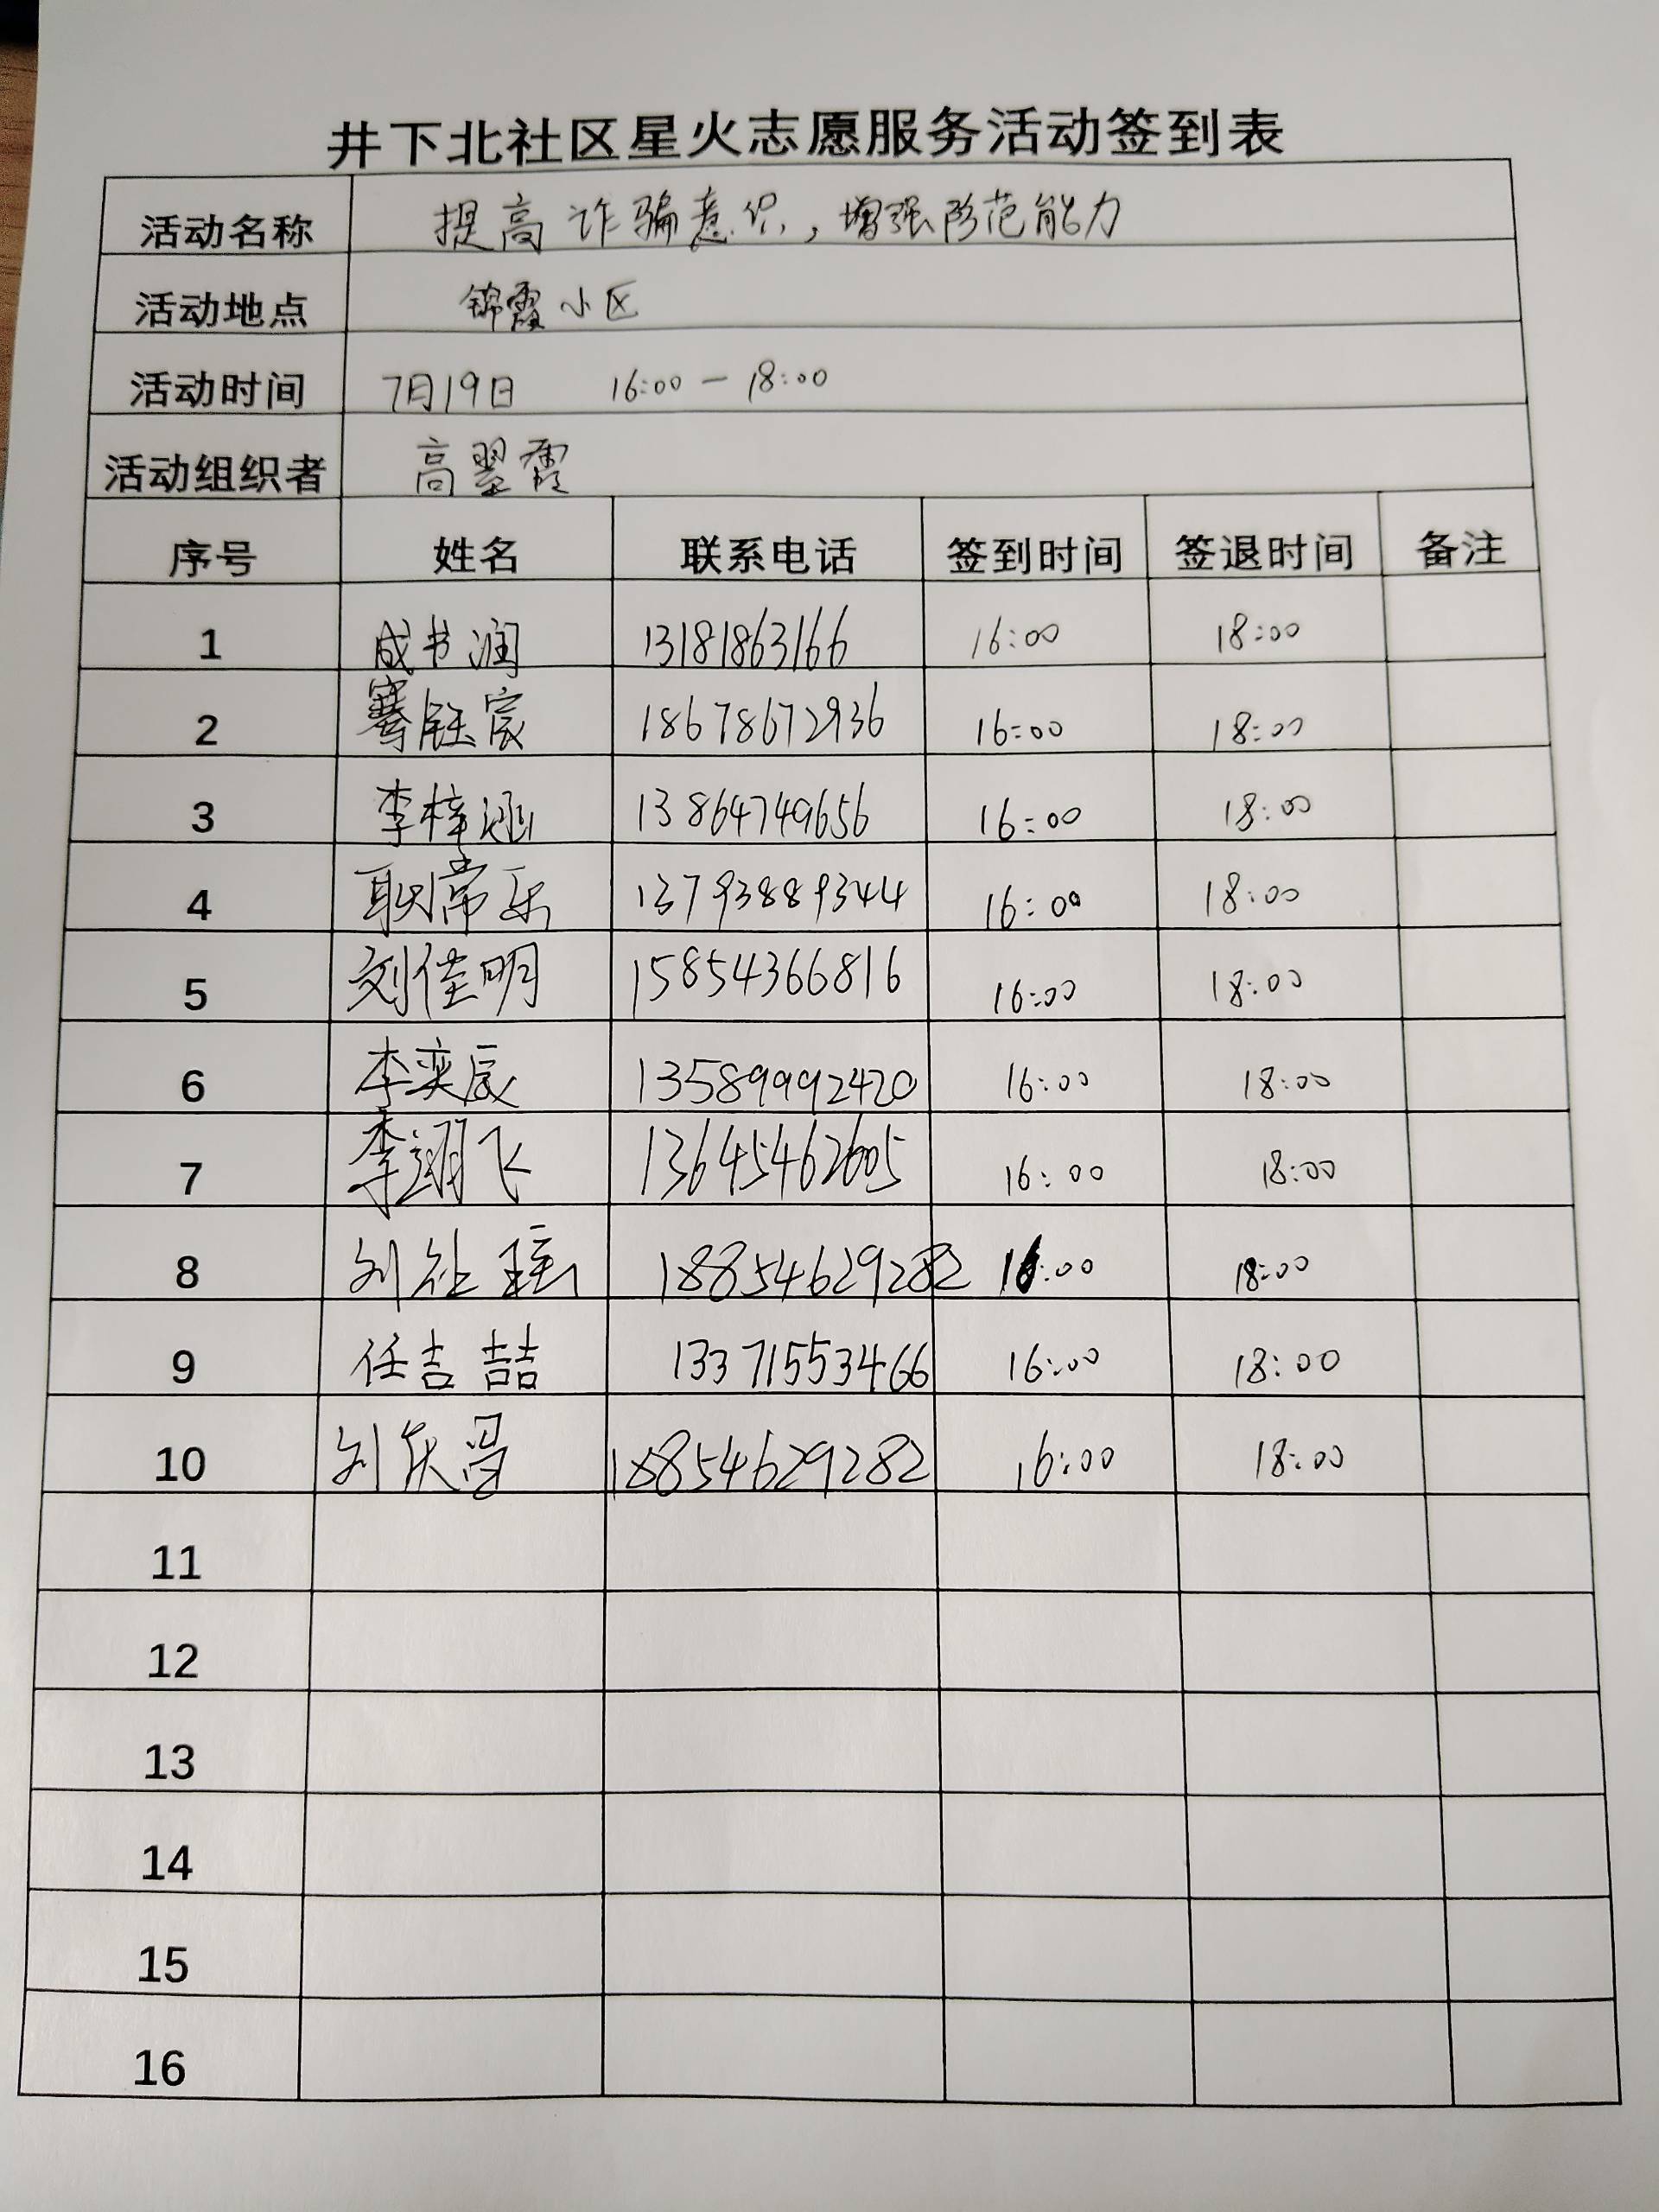 井下北社区星火志愿服务活动签到表
活动名称 提高诈骗意识，增强防范能力
活动地点 锦霞小区
活动时间 7月19日 16:00—18:00
活动组织者 高翠霞
序号 姓名 联系电话 签到时间 签退时间 备注
1 成书润 13181863166 16:00 18:00
2 骞钰宸 18678672936 16:00 18:00
3 李梓涵 13864749656 16:00 18:00
4 耿常乐 13793889344 16:00 18:00
5 刘佳明 15854366816 16:00 18:00
6 李奕辰 13589992420 16:00 18:00
7 李翊飞 13645462605 16:00 18:00
8 刘 18854629282 16:00 18:00
9 任吉喆 13371553466 16:00 18:00
10 刘庆 18854629282 16:00 18:00
11
12
13
14
15
16